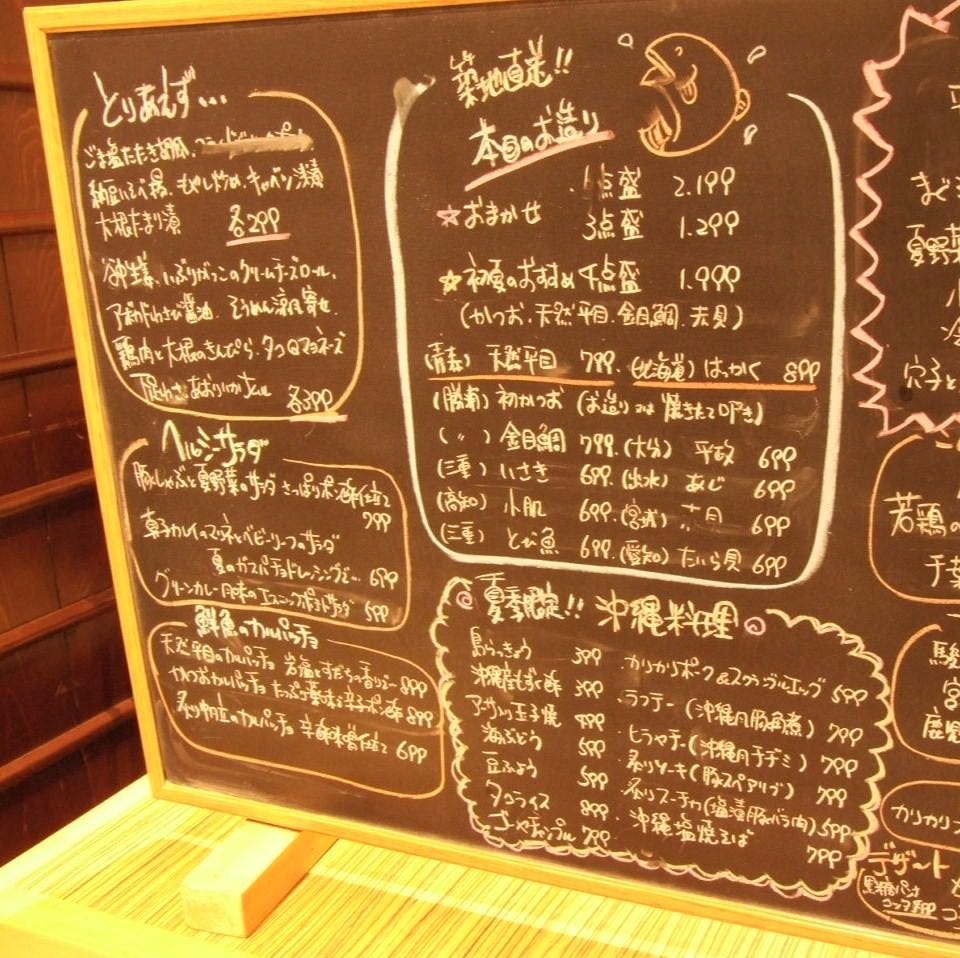 とりあえず...
ごま塩たたき胡瓜、
納豆いそべ揚、もやし炒め、キャベツ浅漬
大根たまり漬 各299
いぶりがっこのクリームチーズロール、
アボカドわさび醤油、そうめん涼風寄せ、
鶏肉と大根のきんぴら、タコのマヨネーズ
各399
ヘルシーサラダ
豚しゃぶと夏野菜のサラダ さっぱりポン酢仕立て
799
真子カレイのマリネとベビーリーフのサラダ
夏のガスパチョドレッシングで… 699
グリーンカレー風味のエスニックポテトサラダ 599
鮮魚のカルパッチョ
天然平目のカルパッチョ 岩塩とすだちの香りで 899
かつおカルパッチョ たっぷり薬味と辛子ポン酢 899
炙り カルパッチョ 辛酢味噌仕立て 699
築地直送!!
本日のお造り
点盛 2.199
☆おまかせ
3点盛 1.299
☆初夏のおすすめ4点盛 1.999
(かつお、天然平目、金目鯛、赤貝)
(青森) 天然平目 799 (北海道) はっかく 899
(勝浦) 初かつお (お造り 焼きたて叩き)
(〃) 金目鯛 799 (大分) 平政 699
(三重) いさき 699 (出水) あじ 699
(高知) 小肌 699 (宮城) 赤貝 699
(三重) とび魚 699 (愛知) たいら貝 699
夏季限定!! 沖縄料理
島らっきょう 399 カリカリポーク&スクランブルエッグ 599
沖縄産もずく酢 399 ラフテー(沖縄風豚角煮) 799
アーサ入り玉子焼 499 ヒラヤチー(沖縄風チヂミ) 799
海ぶどう 599 炙りソーキ(豚スペアリブ) 799
豆ふよう 599 炙りスーチカ(塩漬豚バラ肉) 599
タコライス 899 沖縄塩焼そば 799
ゴーヤチャンプル 799
まぐ
夏野菜
穴子と
若鶏の
千葉
宮
鹿児
カリカリ
デザート
黒糖パンナ
コッタ